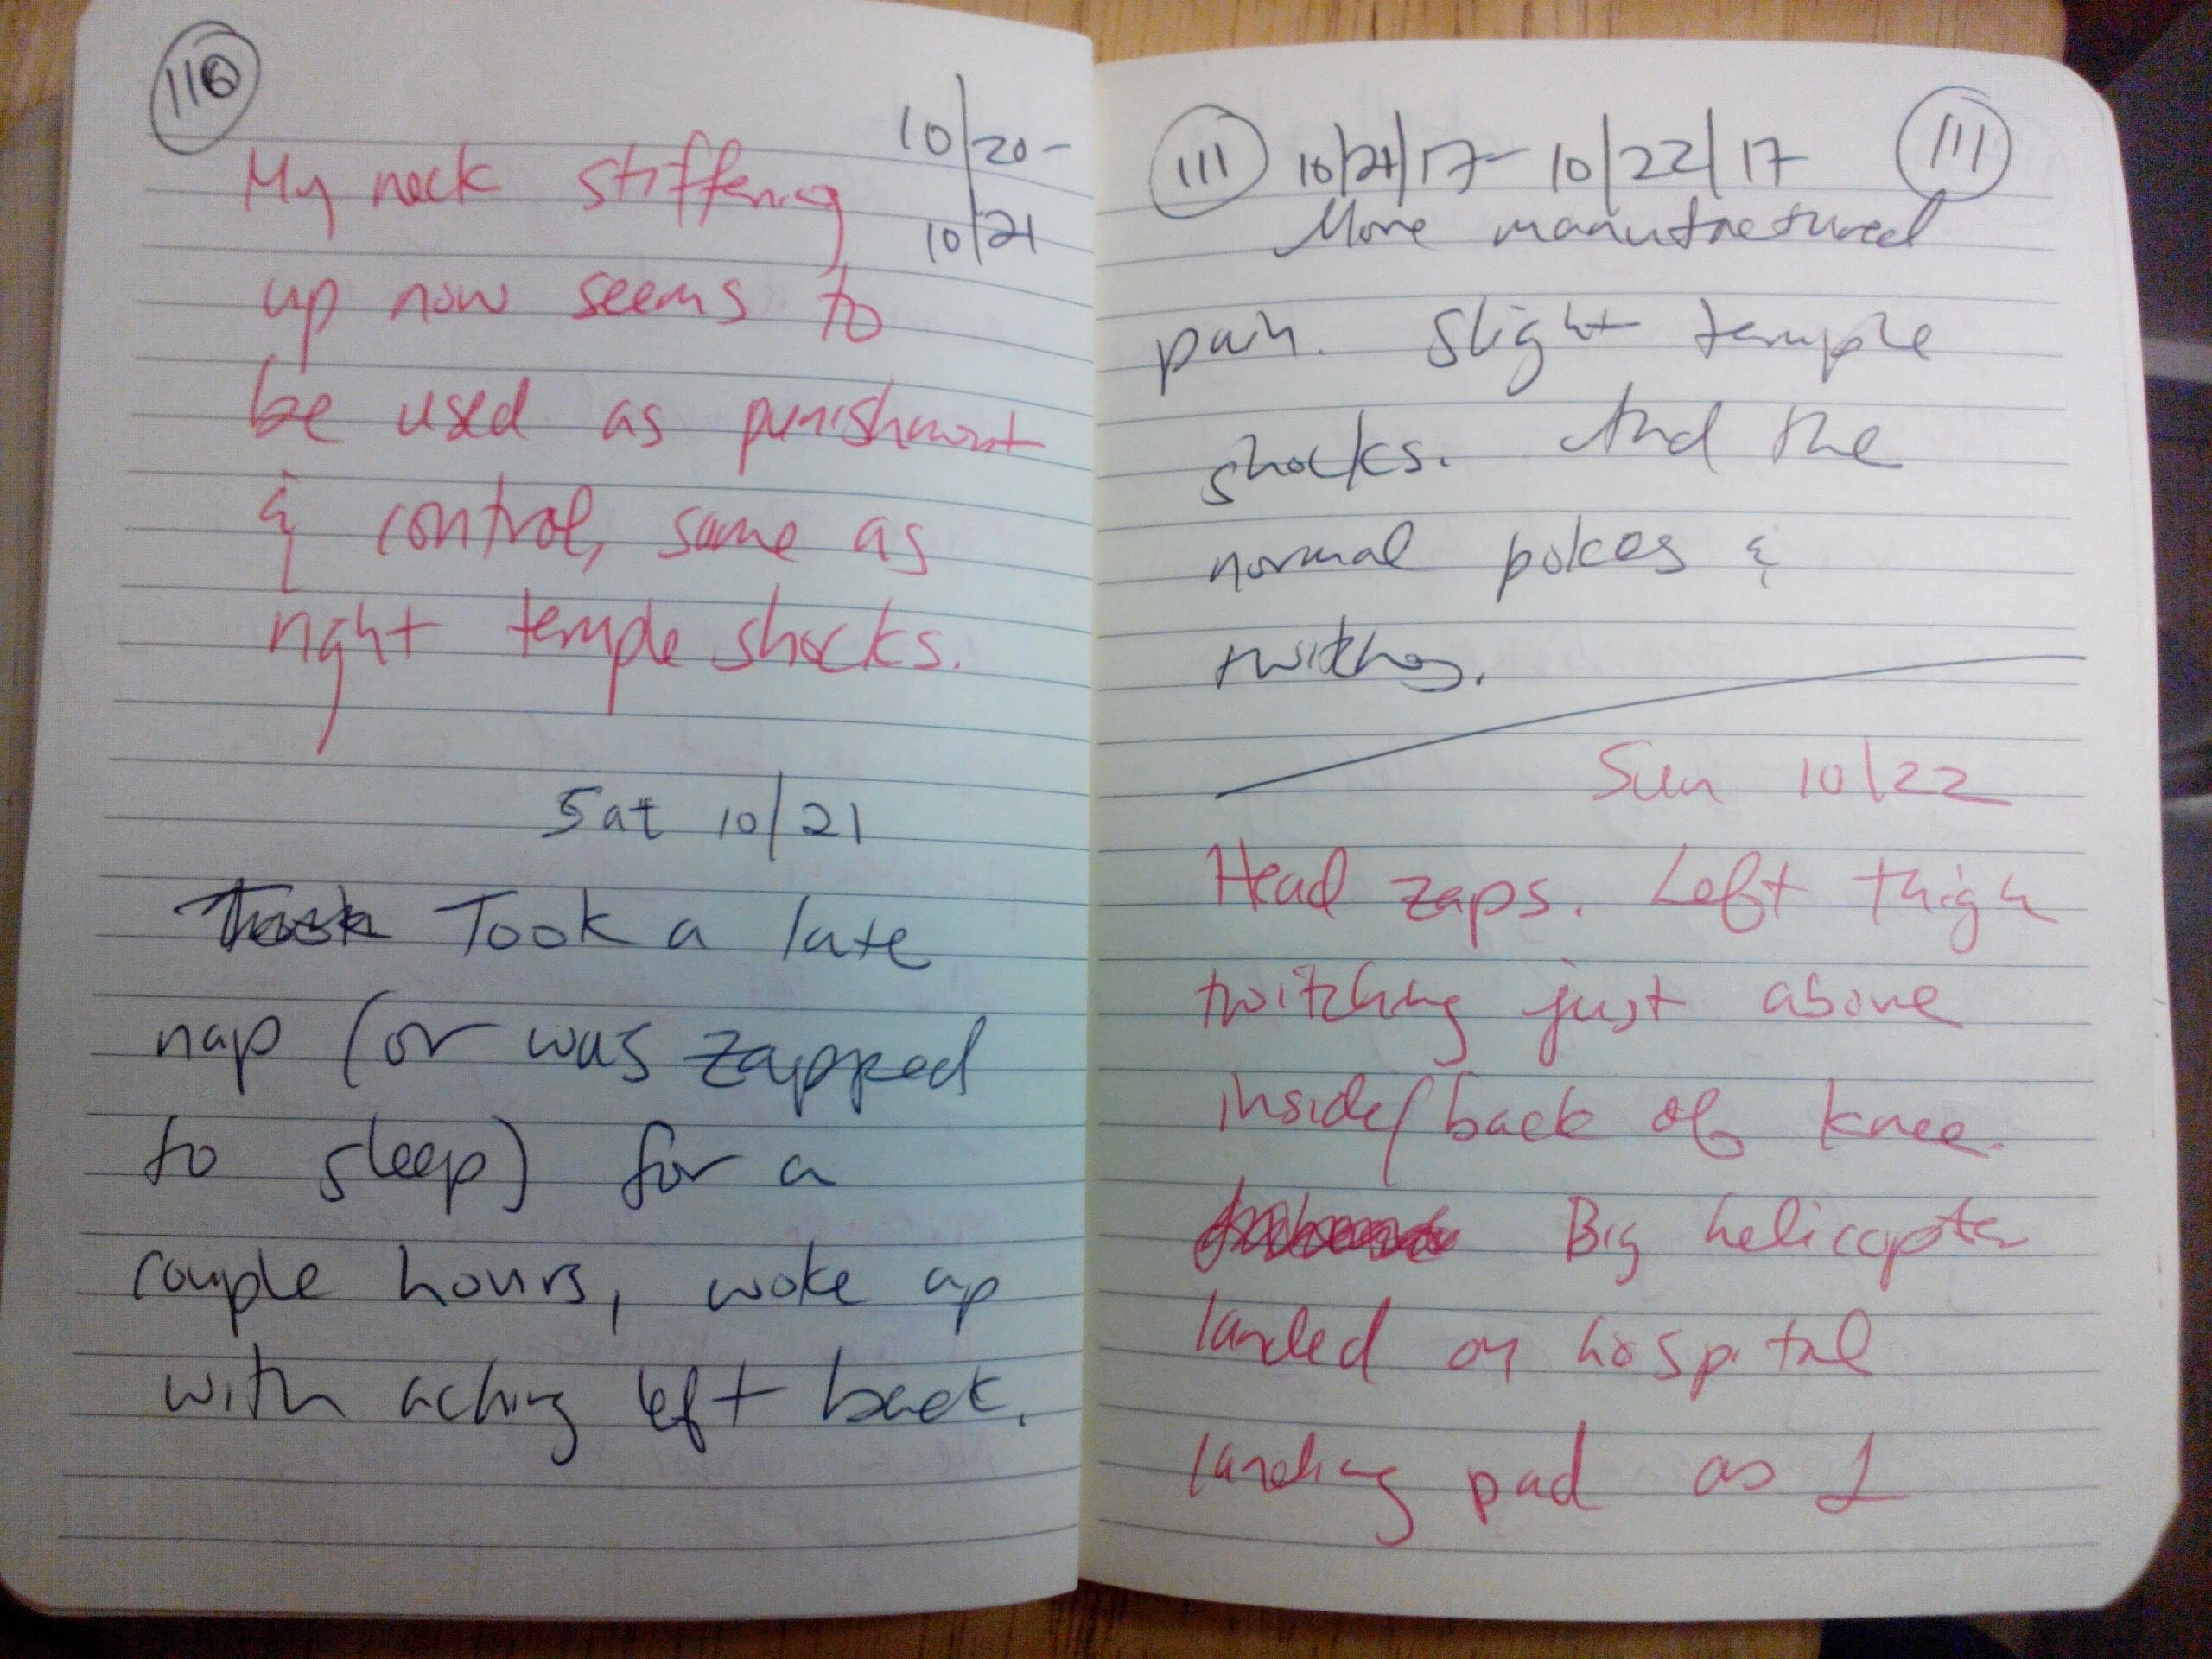 110
10/20-
10/21
My neck stiffening
up now seems to
be used as punishment
& control, same as
right temple shocks.
Sat 10/21
Took a late
nap (or was zapped
to sleep) for a
couple hours, woke up
with aching left back.
111 10/21/17- 10/22/17 111
More manufactured
pain. Slight temple
shocks. And the
normal pokes &
twitches.
Sun 10/22
Head zaps. Left thigh
twitching just above
inside/back of knee.
Big helicopter
landed on hospital
landing pad as I